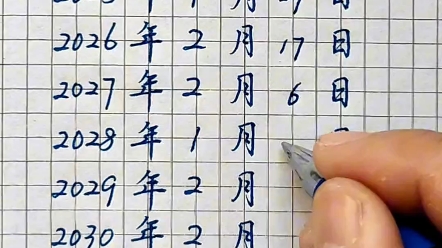 2026年2月17日
2027年2月6日
2028年1月
2029年2月
2030年2月